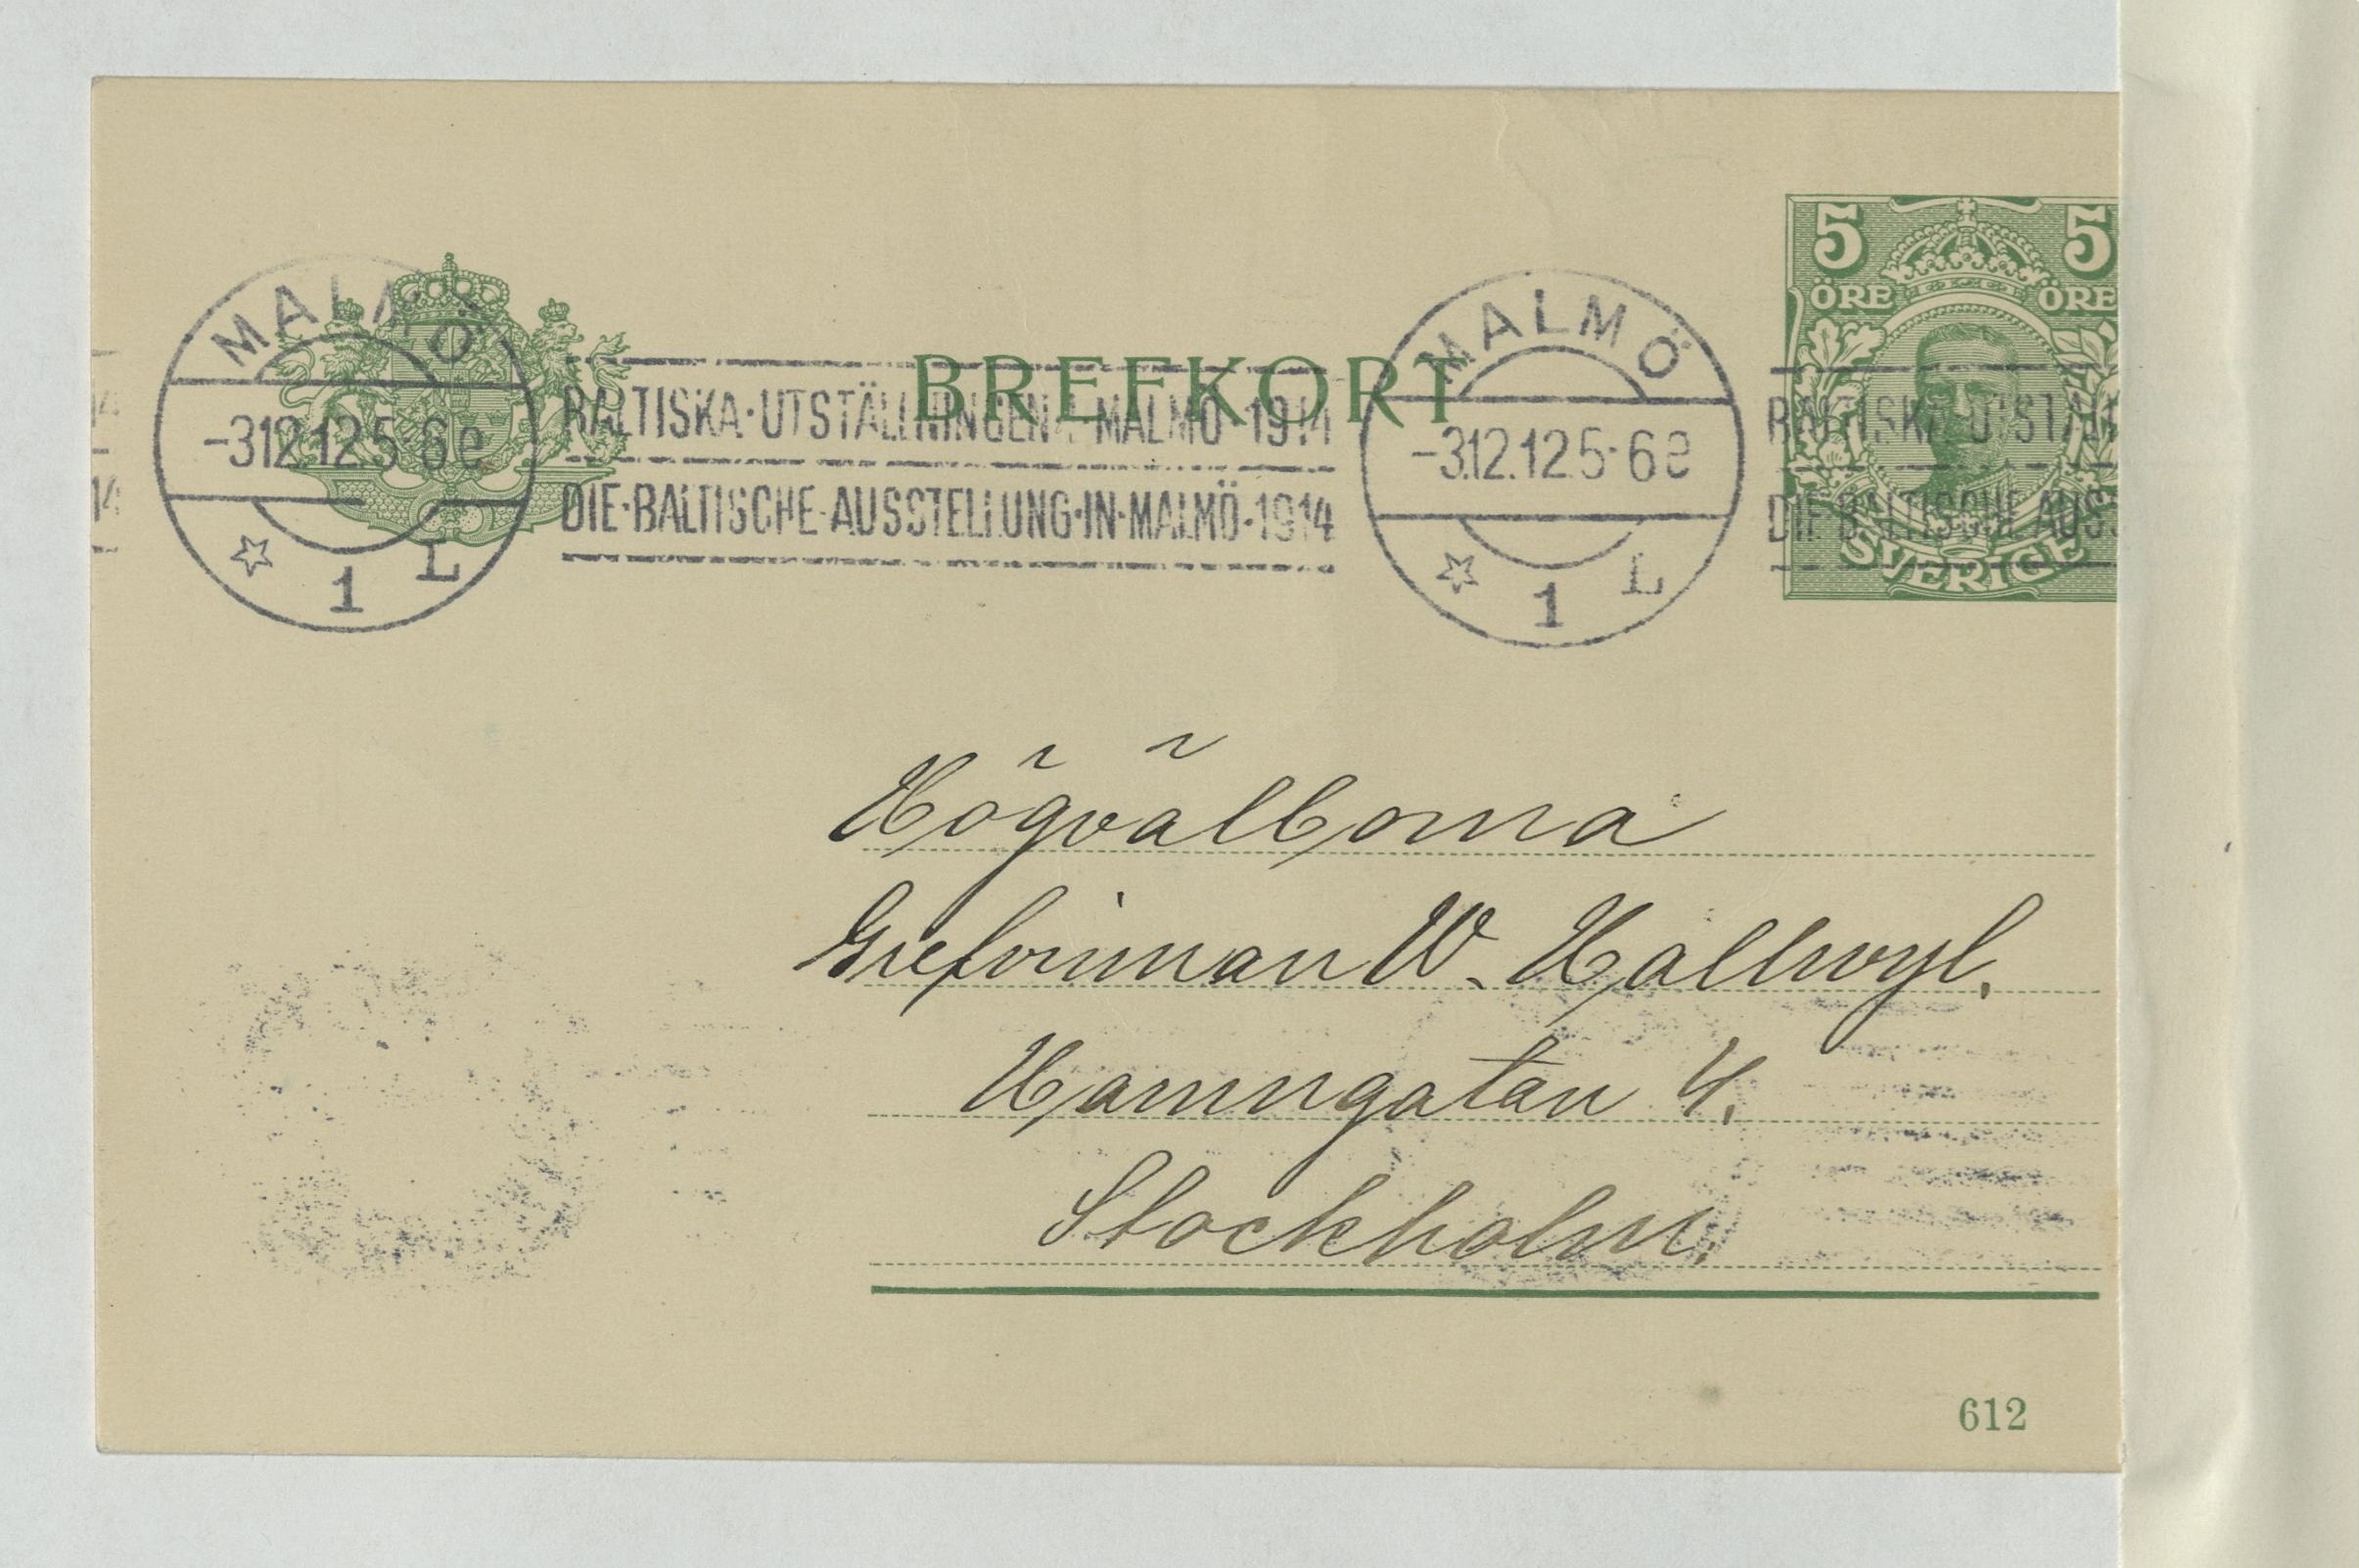 5 5
ÖRE ÖRE
MALMÖ
MALMÖ
BREFKORT
14
BALTISKA·UTSTÄLLNINGEN·I·MALMÖ·1914
BALTISKA·UTSTÄL
-3.12.12 5-6 e
-3.12.12 5-6 e
14
DIE·BALTISCHE·AUSSTELLUNG·IN·MALMÖ·1914
DIE·BALTISCHE·AUSS
SVERIGE
1 L
1 L
Högvälborna
Grefvinnan W. Hallwyl.
Hamngatan 4.
Stockholm.
612